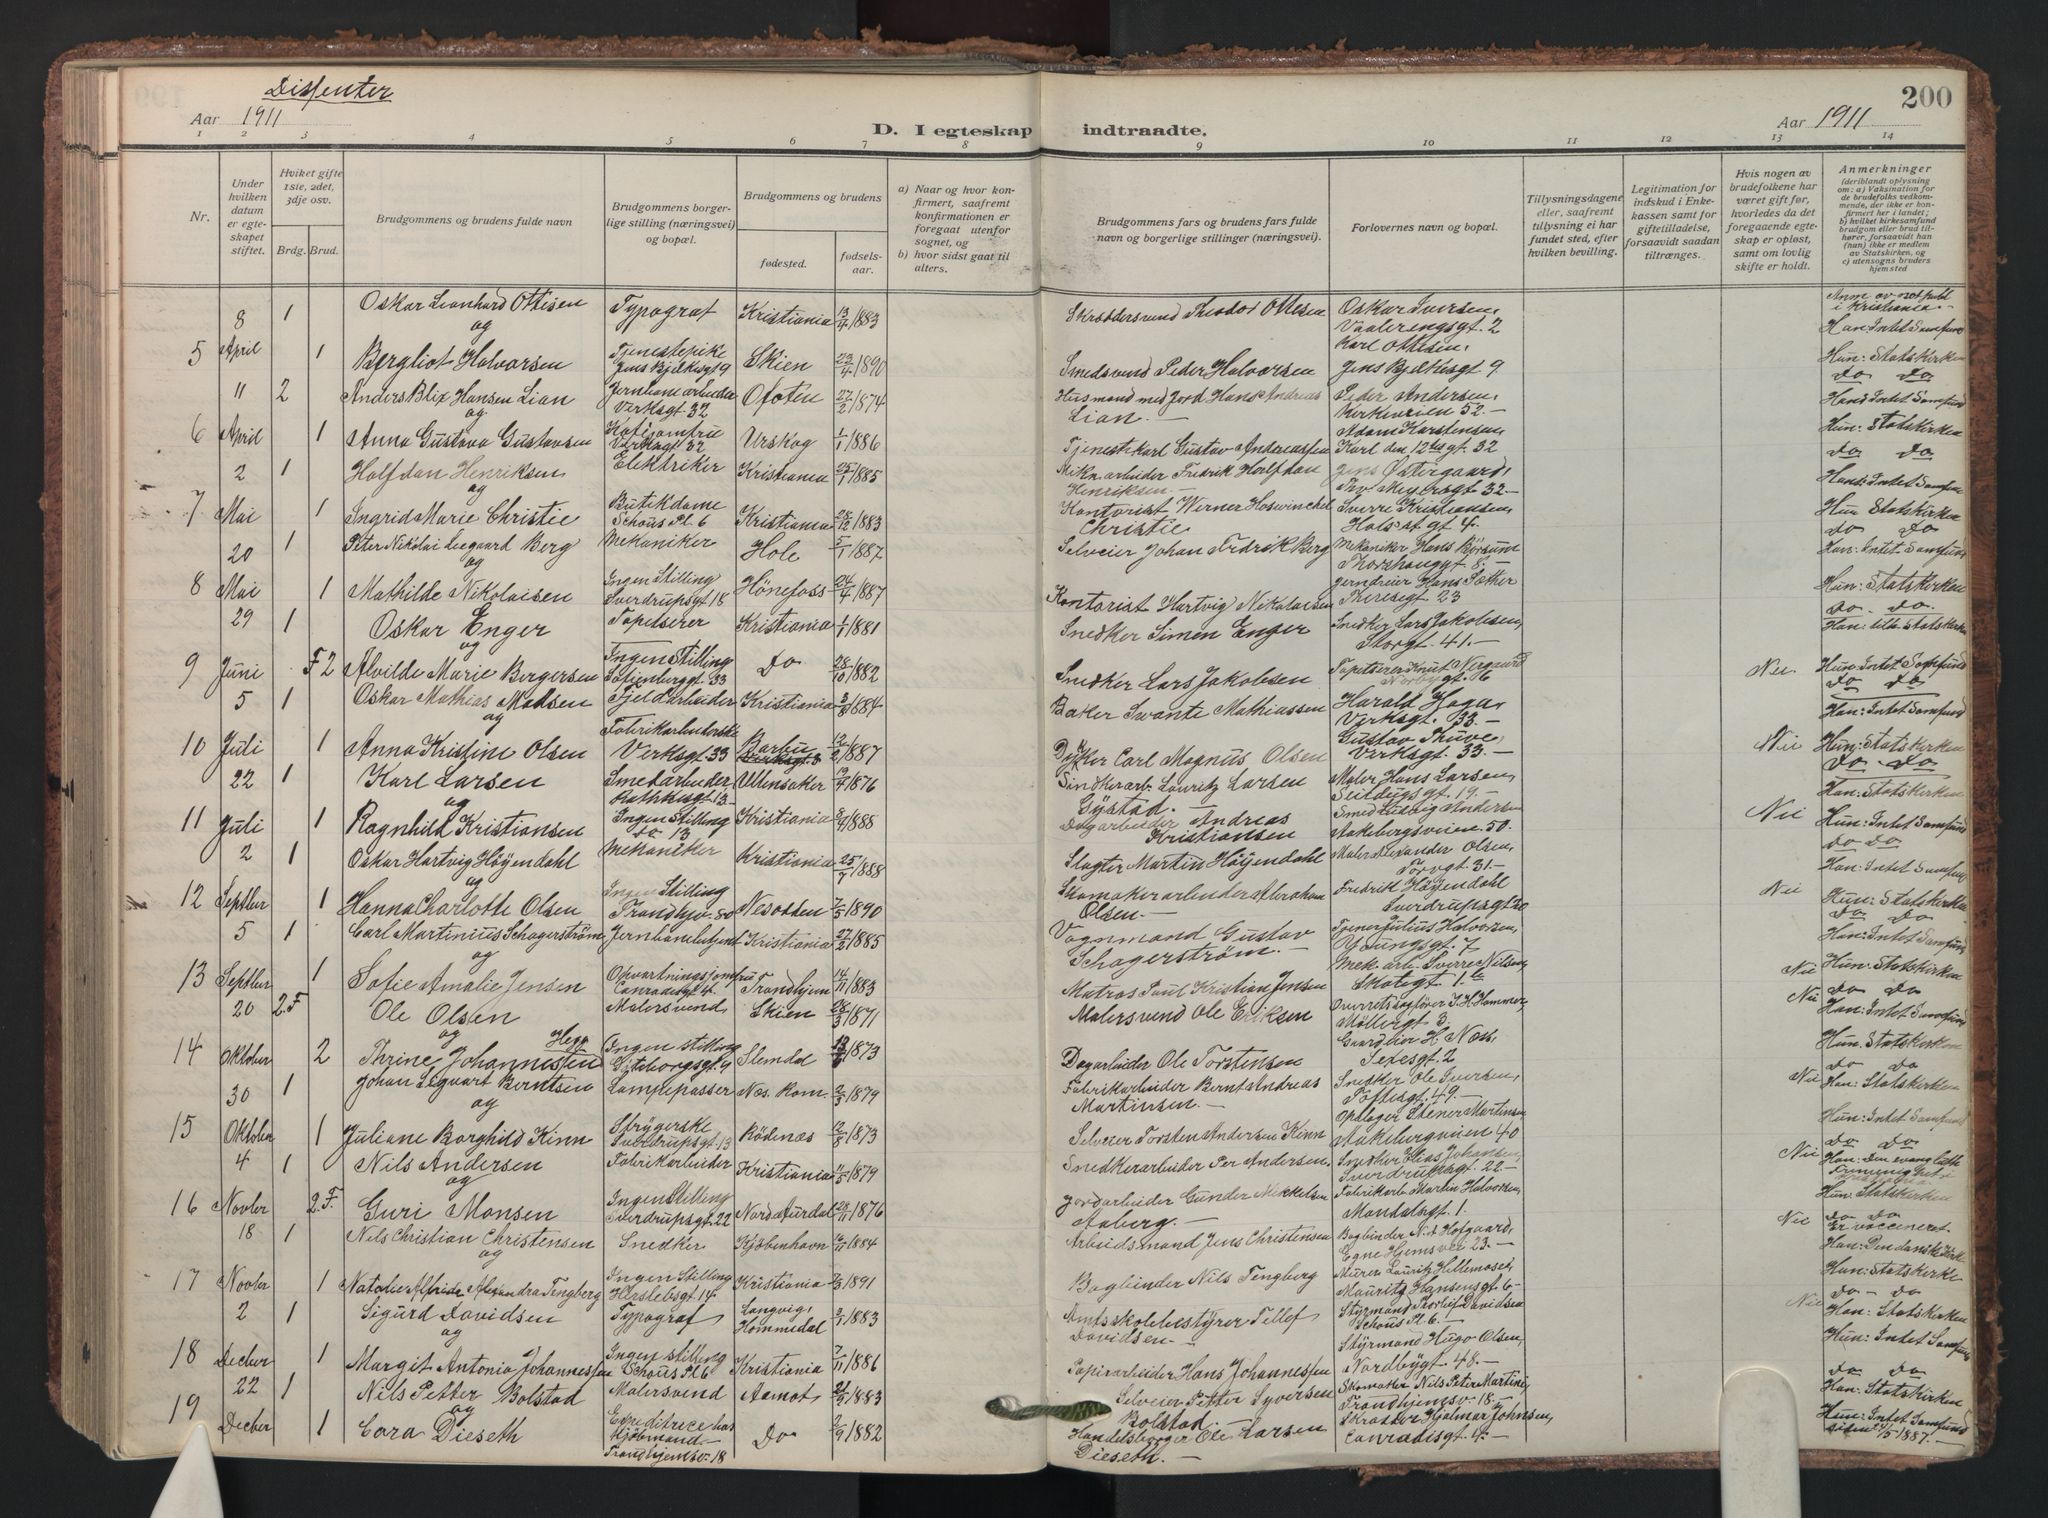 Dissenter
Aar 1911
D. I egteskap indtraadte.
Aar 1911
200
1 2 3 4 5 6 7 8 9 10 11 12 13 14
Nr.
Under hvilken datum er egteskapet stiftet.
Hviket gifte 1ste, 2det, 3dje osv.
Brdg. Brud.
Brudgommens og brudens fulde navn
Brudgommens borgerlige stilling (næringsvei) og bopæl.
Brudgommens og brudens
fødested. fødselsaar.
a) Naar og hvor konfirmert, saafremt konfirmationen er foregaat utenfor sognet, og
b) hvor sidst gaat til alters.
Brudgommens fars og brudens fars fulde navn og borgerlige stillinger (næringsvei).
Forlovernes navn og bopæl.
Tillysningsdagene eller, saafremt tillysning ei har fundet sted, efter hvilken bevilling.
Legitimation for indskud i Enkekassen samt for giftetilladelse, forsaavidt saadan tiltrænges.
Hvis nogen av brudefolkene har været gift før, hvorledes da det foregaaende egteskap er opløst, samt om lovlig skifte er holdt.
Anmerkninger
(deriblandt oplysning om: a) Vaksination for de brudefolks vedkommende, der ikke er konfirmert her i landet; b) hvilket kirkesamfund brudgom eller brud tilhører, forsaavidt han (hun) ikke er medlem av Statskirken, og c) utensogns bruders hjemsted
5 8 April 1 Oskar Leonhard Ottesen Typograf Kristiania 13/4 1883 Skræddersvend Theodor Ottesen Oskar Iversen, Vaalerengsgt. 2 i Kristiania Han: Intet Samfund
og
1 Bergliot Halvorsen Tjenestepike Jens Bjelkesgt 9 Skien 23/4 1890 Smedsvend Peder Halvorsen Karl Ottesen, Jens Bjelkesgt 9 Hun: Statskirken
6 11 April 2 Anders Blix Hansen Lian Jernbanearbeider Verksgt. 32 Ofoten 27/2 1874 Husmand med Jord Hans Andreas Lian. Peder Andersen, Kirkeveien 52. do do Han: Intet Samfund
og
1 Anna Gustava Gustavsen Verksgt 32 Urskog 1/1 1886 Tjenestkarl Gustav Andreassen Adam Karstensen, Karl den 12tes gt. 32 Hun: Statskirken
7 2 Mai 1 Halfdan Henriksen Elektriker Kristiania 25/1 1885 Fredrik Halfdan Henriksen Jens Østergaard, Thv. Meyersgt 32. do do Han: Intet Samfund
og
1 Ingrid Marie Christie Butikdame Schous Pl. 6 Kristiania 28/12 1883 Kontorist Werner Hoswinckel Christie Sverre Kristiansen, gt 4. Hun Statskirken
8 20 Mai 1 Peter Nikolai Leegaard Berg Mekaniker Hole 5/1 1887 Selveier Johan Fredrik Berg Mekaniker Hans Børsum Thorshauggt 8. do do Han: Intet Samfund
og
1 Mathilde Nikolaisen Ingen Stilling Sverdrupsgt 18 Hönefoss 24/4 1887 Kontorist Hartvig Nikolaisen Jerndreier Hans Sæther Theresegt. 23 Hun: Statskirken
9 29 Juni 1 Oskar Enger Tapetserer Kristiania 1/1 1881 Snedker Simen Enger Snedker Lars Jakobsen, Storgt. 41. do. do. Han: tilh. Statskirken
og
F 2 Alvilde Marie Bergersen Ingen Stilling Sofienberggt. 33 Do 28/10 1882 Snedker Lars Jakobsen Tapetserer Knut Nergaard Norbygt. 16 Nei Hun: Intet Samfund
10 5 Juli 1 Oskar Mathias Madsen Fjeldarbeider Kristiania 3/8 1884 Bøker Swante Mathiassen Harald Haga, Verksgt. 33. do do Han: Intet Samfund
og
1 Anna Kristine Olsen Fabrikarbeiderske Verksgt 33 Barbu 12/2 1887 Dykker Carl Magnus Olsen Gustav Thuve, Verksgt 33. Nei Hun: Statskirken
11 22 Juli 1 Karl Larsen Smedarbeider Rathkesgt 13 Ullensaker 19/4 1876 Snedkerarb. Lauritz Larsen Gjøstad. Maler Hans Larsen, Seildugsgt. 19. do. do Han: Statskirken
og
1 Ragnhild Kristiansen Ingen Stilling do 13 Kristiania 1888 Dagarbeider Andreas Kristiansen Smed Ludvig Andersen Aakebergsveien 50. Nei Hun: Intet Samfund
12 2 Septber 1 Oskar Hartvig Höyendahl Mekaniker Kristiania 25/7 1888 Slagter Martin Höyendahl Maler Alexander Olsen, Torvgt. 31. do do Han: Intet Samfund
og
1 Hanna Charlotte Olsen Ingen Stilling Trondhjv. 50 Nesodden 7/5 1890 Skomakerarbeider Abraham Olsen. Fredrik Höyendahl Sverdrupsgt 20 Nei Hun: Statskirken
13 5 Septber 1 Carl Martinius Schagerström Jernbanebetjent Kristiania 27/2 1885 Vognmand Gustav Schagerström. Tjener Julius Halvorsen, Youngsgt. 7 do do Han: Intet Samfund
og
1 Sofie Amalie Jensen Opvartningsjomfru Conradisgt 4 Trondhjem 14/11 1883 Matros Paul Kristian Jensen Mek. arb. Sverre Nilsen, Skolegt 1. Nei Hun: Statskirken
14 20 Oktober 2.F Ole Olsen Malersvend Skien 28/3 1871 Malersvend Ole Eriksen Overretssagfører J. H. Hammer, Möllergt 3. Nei do do Han: Intet Samfund
og
2 Thrine Johannesten Hegg Ingen stilling Göteborggt. 9 Slemdal 1873 Dagarbeider Ole Torstensen Gaardeier H. Næss, Sexesgt. 2 Hun Statskirken
15 30 Oktober 1 Johan Siguart Berntsen Lampepasser Nes. Rom. 2/3 1879 Fabrikarbeider Bernt Andreas Martinsen. Snedker Ole Iversen, Toftesgt. 49. Nei do do Han: Statskirken
og
1 Juliane Borghild Kinn Strygerske Sverdrupsgt. 13 Rödenæs 12/8 1873 Selveier Torsten Andersen Kinn Oplager Stener Martinsen Aakebergveien 40 Hun: Intet Samfund
16 4 Novber 1 Nils Andersen Fabrikarbeider Kristiania 11/5 1879 Snedkerarbeider Per Andersen. Snedker Elias Johansen, Sverdrupsgt. 22. Nei do do Han: Den evang luth
og
2.F. Guri Monsen Ingen Stilling Sverdrupsgt. 22 Nord Aurdal 28/11 1876 Jordarbeider Gunder Mikkelsen Aaberg. Fabrikarb. Martin Halvorsen, Mandalsgt. 1. Hun Statskirken
17 18 Novber 1 Nils Christian Christensen Snedker Kjöbenhavn 1884 Arbeidsmand Jens Christensen Bogbinder N. A Hofgaard, Egne Hjemsvei 23. Nei do do Er vaccineret. Han: Den danske kirke
og
1 Natalie Alfrida Alexandra Tengberg Ingen Stilling Herslebsgt. 14 Kristiania 1891 Bogbinder Nils Tengberg Murer Lauritz Hillemoset, Mauritz Hansensgt 6 Hun: Statskirke
18 2 Decber 1 Sigurd Davidsen Typograf Langvig, Hommedal 1883 Amtsskolebestyrer Tellef Davidsen. Styrmand Thorleif Davidsen Schous Pl. 6. Nei do - do Han: Statskirken
og
1 Margit Antonia Johannessen Ingen stilling Schous Pl. 6 Kristiania 7/11 1886 Papirarbeider Hans Johannessen Styrmand Hugo Olsen, Nordbygt. 48. Hun: Intet Samfund
19 22 Decber 1 Nils Petter Bolstad Malersvend Aamot 1883 Selveier Petter Syversen Bolstad. Skomaker Nils Peter Martini, Trondhjemsv. 18. do do Han: Statskirken
og
1 Cora Dieseth Expeditrice hos Hjöbmand Trondhjemsv. 18 Do 2/9 1882 Handelsborger Ole Larsen Dieseth. Skrædder Hjalmar Johnsen, Conradisgt. 4. Hun: Intet Samfund siden 1/5 1887.